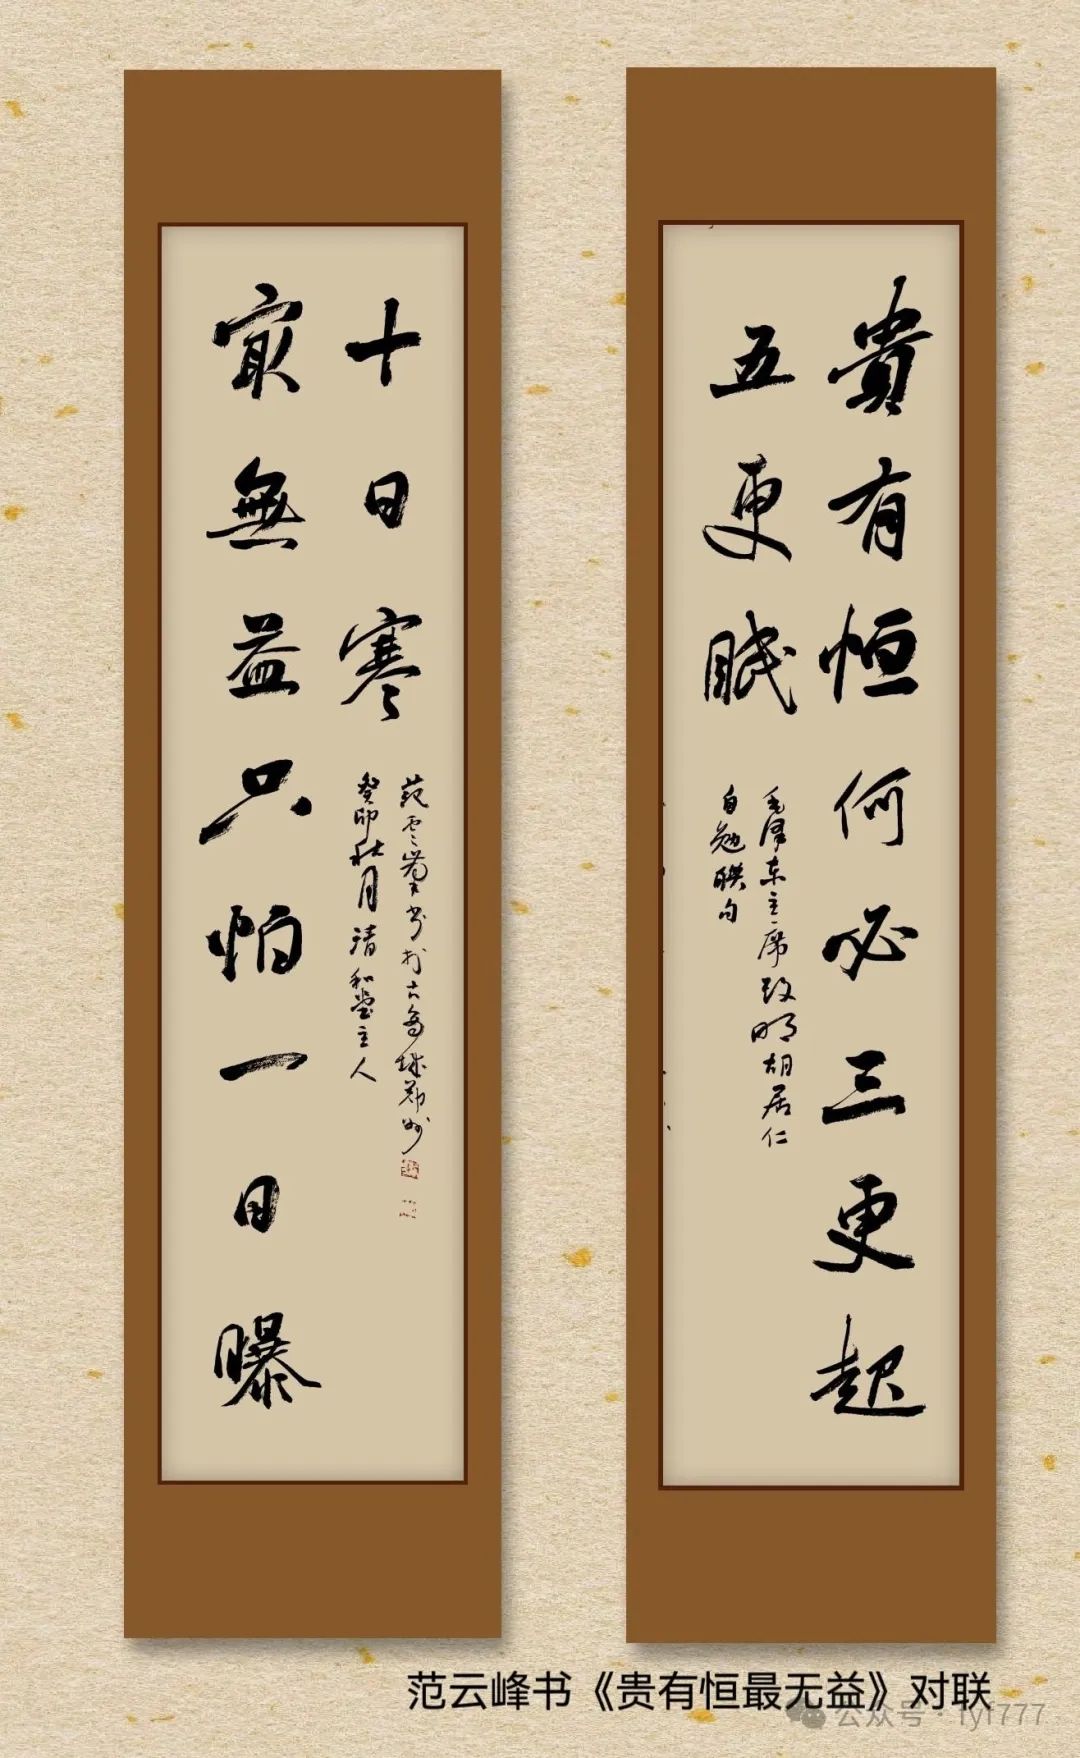 貴有恒何必三更起
五更眠
毛泽东主席改明胡居仁
自勉联句
最無益只怕一日曝
十日寒
范云峰书于古商城郑州
癸卯秋月清和堂主人
范云峰书《贵有恒最无益》对联
公众号·fyf777